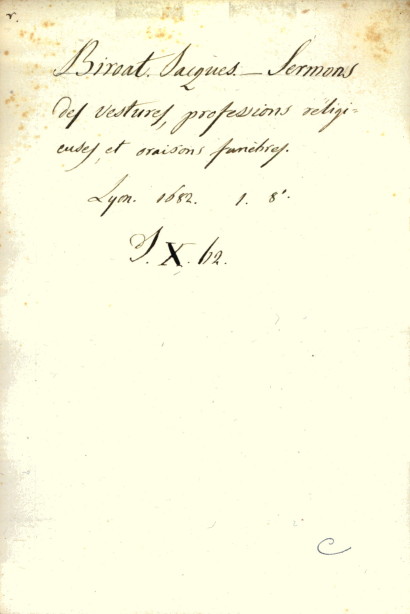 r.
Biroat. Jacques. — Sermons
des vestures, professions religi=
euses, et oraisons funèbres.
Lyon. 1682. 1. 8°.
X. 62.
C